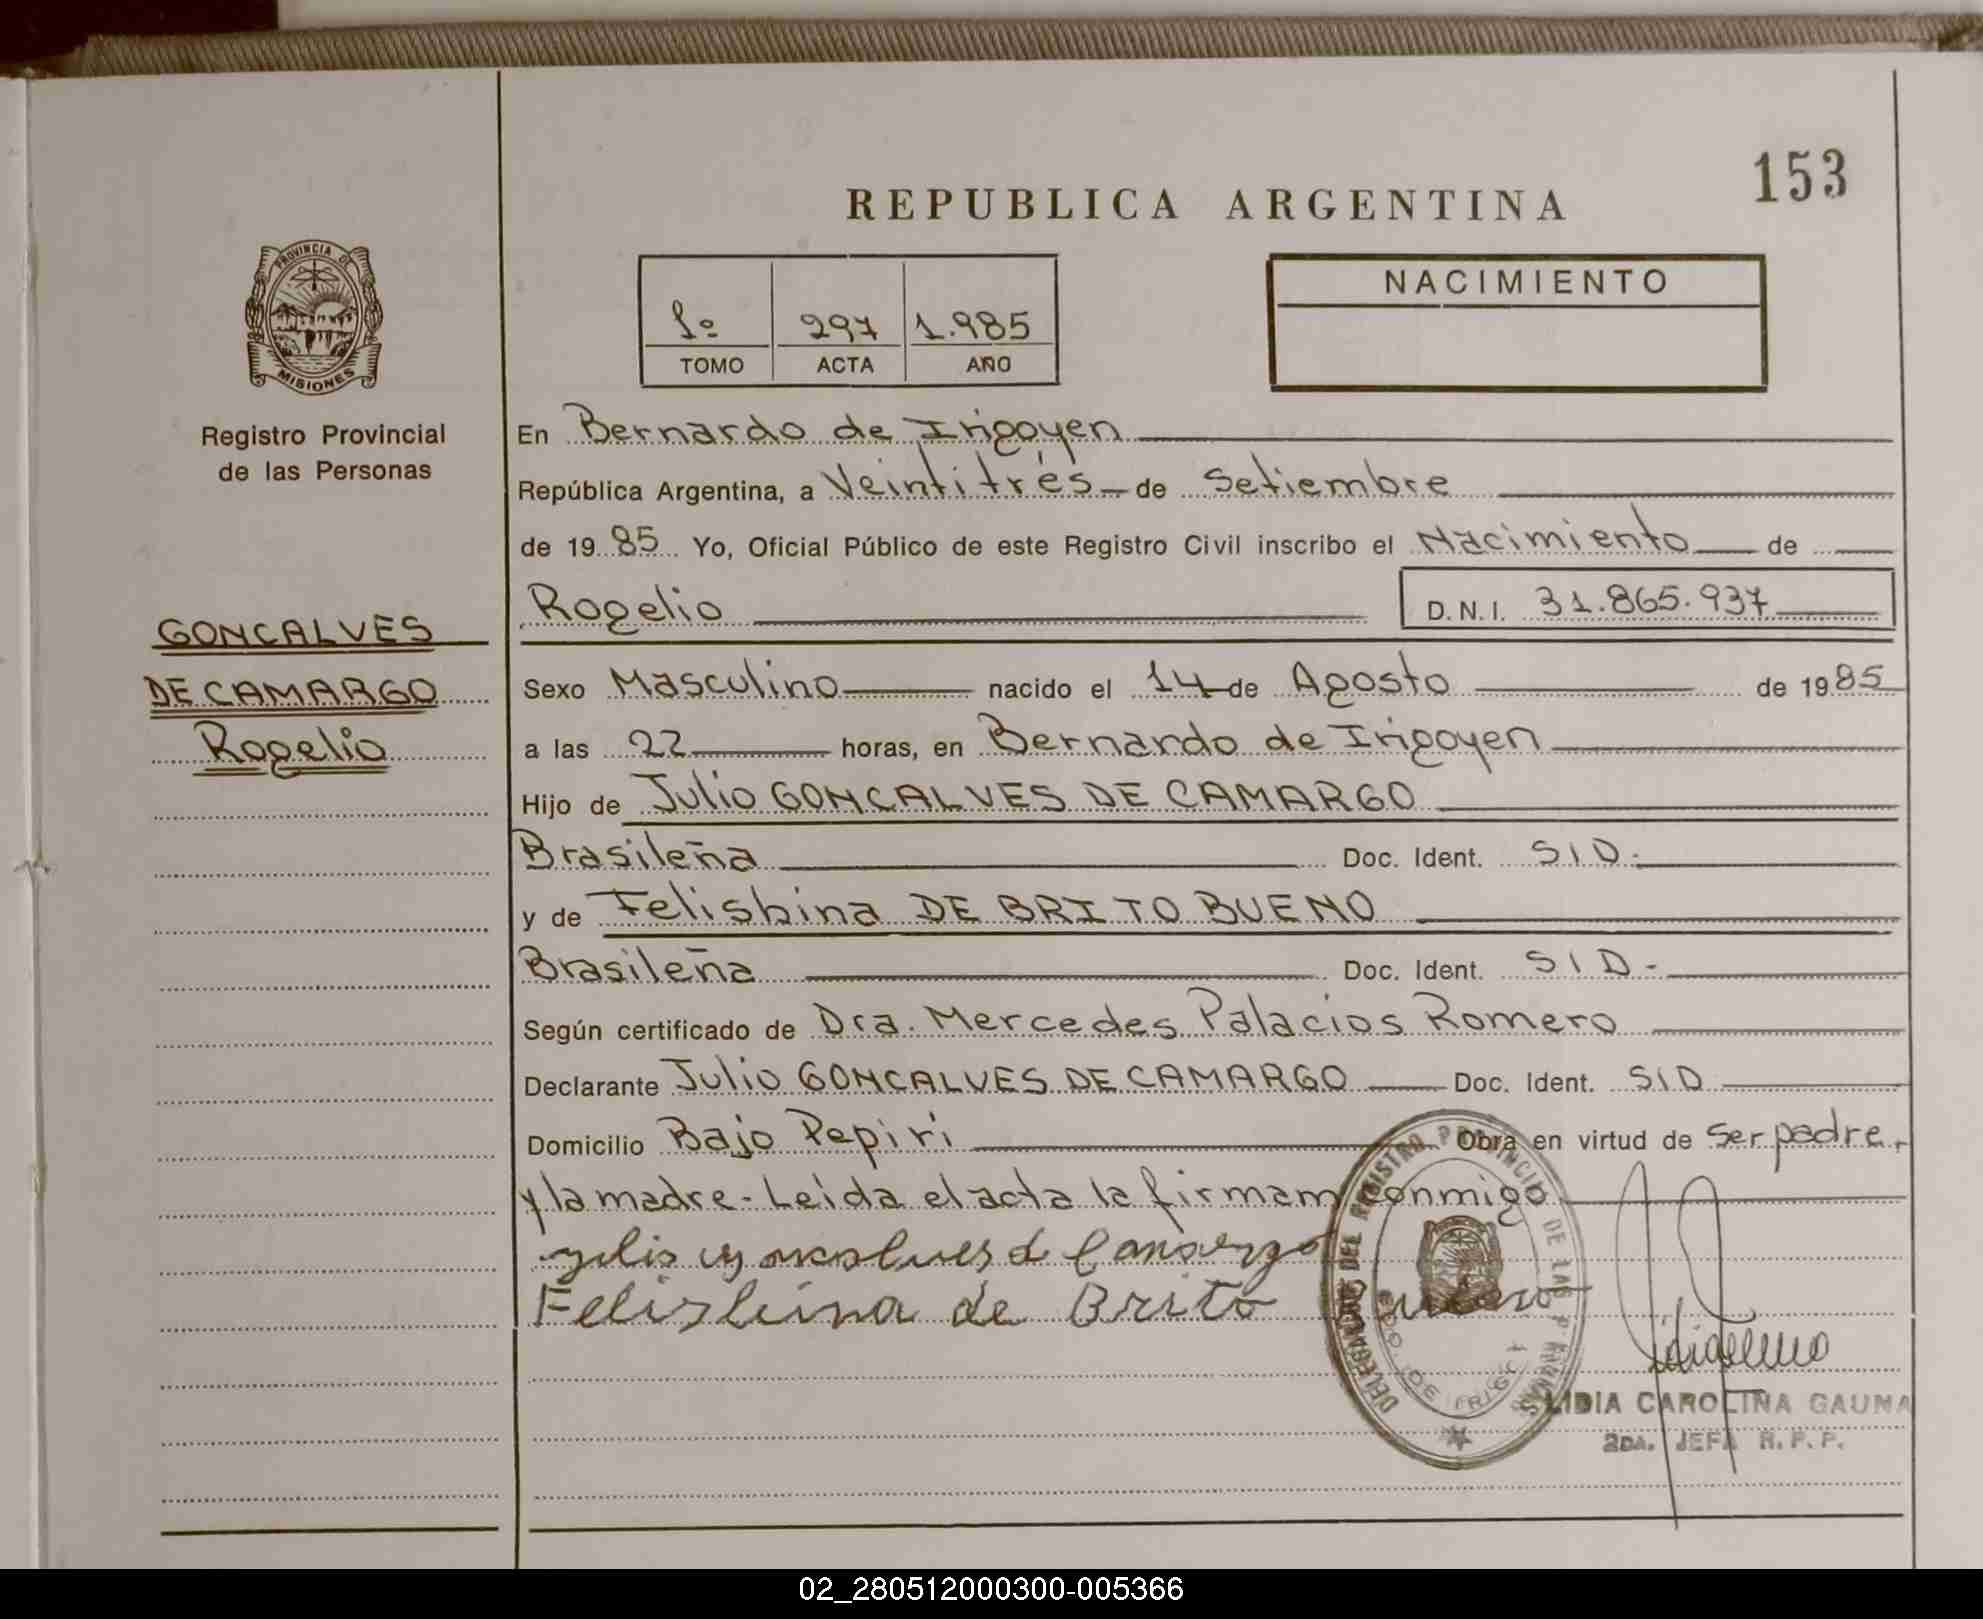 153
REPUBLICA ARGENTINA
PROVINCIA DE
MISIONES
Registro Provincial
de las Personas
1º 297 1.985
TOMO ACTA AÑO
NACIMIENTO
En Bernardo de Irigoyen
República Argentina, a Veintitrés de Setiembre
de 1985 Yo, Oficial Público de este Registro Civil inscribo el Nacimiento de
Rogelio D.N.I. 31.865.937
GONCALVES
DE CAMARGO
Rogelio
Sexo Masculino nacido el 14 de Agosto de 1985
a las 22 horas, en Bernardo de Irigoyen
Hijo de Julio GONCALVES DE CAMARGO
Brasileña Doc. Ident. S/D.
y de Felisbina DE BRITO BUENO
Brasileña Doc. Ident. S/D.
Según certificado de Dra. Mercedes Palacios Romero
Declarante Julio GONCALVES DE CAMARGO Doc. Ident. S/D
Domicilio Bajo Pepiri Obra en virtud de ser padre.
y la madre - Leída el acta la firman conmigo
Felisbina de Brito
DELEGADO DEL REGISTRO PROVINCIAL DE LAS PERSONAS
BDO. DE IRIGOYEN
LIDIA CAROLINA GAUNA
2DA. JEFA R.P.P.
02_280512000300-005366